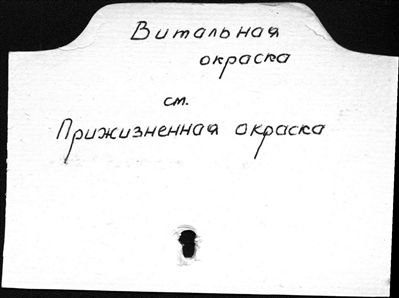 Витальная
окраска
см.
Прижизненная окраска